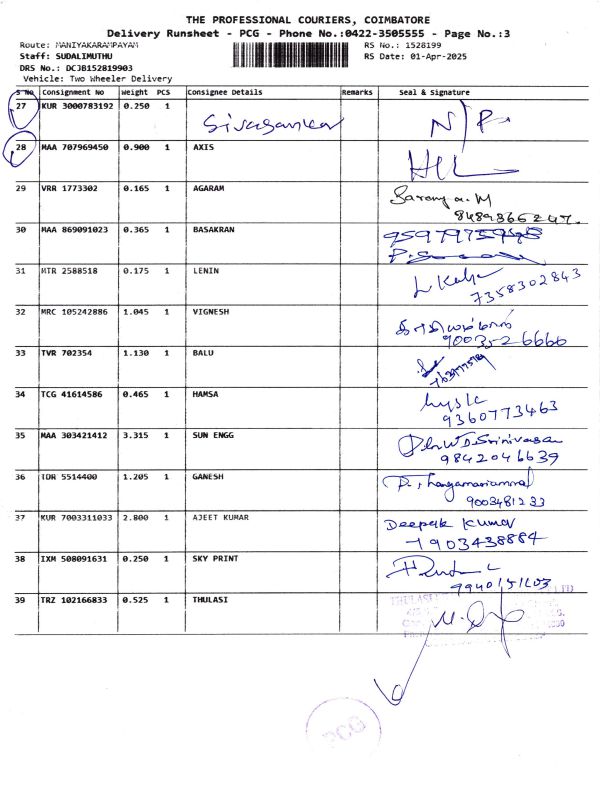 THE PROFESSIONAL COURIERS, COIMBATORE
Delivery Runsheet - PCG - Phone No.:0422-3505555 - Page No.:3
Route: MANIYAKARAMPAYAM RS No.: 1528199
Staff: SUDALIMUTHU RS Date: 01-Apr-2025
DRS No.: DCJB152819903
Vehicle: Two Wheeler Delivery
S No Consignment No Weight PCS Consignee Details Remarks Seal & Signature
27 KUR 3000783192 0.250 1 Sivasankar N/P
28 MAA 707969450 0.900 1 AXIS
29 VRR 1773302 0.165 1 AGARAM Saranya. M
8489866247.
30 MAA 869091023 0.365 1 BASAKRAN
31 MTR 2588518 0.175 1 LENIN
7358302843
32 MRC 105242886 1.045 1 VIGNESH
9003526660
33 TVR 702354 1.130 1 BALU
34 TCG 41614586 0.465 1 HAMSA
9360773463
35 MAA 303421412 3.315 1 SUN ENGG Srinivasan
9842046639
36 TDR 5514400 1.205 1 GANESH P. Thangamariammal
9003481233
37 KUR 7003311033 2.800 1 AJEET KUMAR Deepak Kumar
7903438884
38 IXM 508091631 0.250 1 SKY PRINT
39 TRZ 102166833 0.525 1 THULASI
PCG